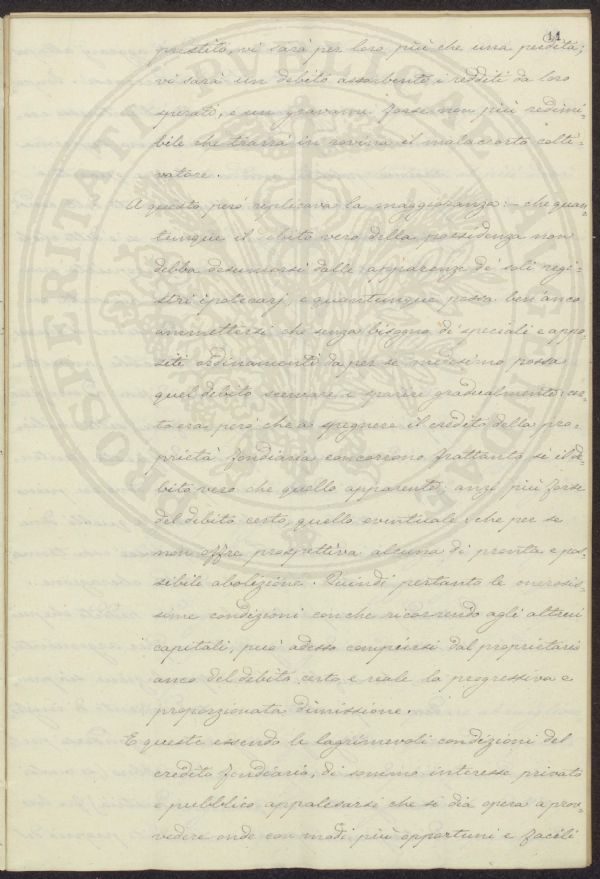 11
prestito, vi sarà per loro più che una perdita;
vi sarà un debito assorbente i redditi da loro
sperati, e un gravame forse non più redimi-
bile che trarrà in rovina il malaccorto colti-
vatore.
A questo però replicava la maggioranza: — che quan-
tunque il debito vero della possidenza non
debba desumersi dalle apparenze de' soli regi-
stri ipotecarj, e quantunque possa ben anco
ammettersi che senza bisogno di speciali e appo-
siti ordinamenti da per se medesimo possa
quel debito scemare e sparire gradualmente; cer-
to era però che a spegnere il credito della pro-
prietà fondiaria concorrono frattanto sì il de-
bito vero che quello apparente, anzi più forse
del debito certo, quello eventuale che per se
non offre prospettiva alcuna di pronta e pos-
sibile abolizione. Quindi pertanto le onerosis-
sime condizioni con che ricorrendo agli altrui
capitali, può adesso compiersi dal proprietario
anco del debito certo e reale la progressiva e
proporzionata dimissione.
E queste essendo le lagrimevoli condizioni del
credito fondiario, di sommo interesse privato
e pubblico appalesarsi che si dia opera a prov-
vedere onde con modi più opportuni e facili
PROSPERITATI PVBLICAE